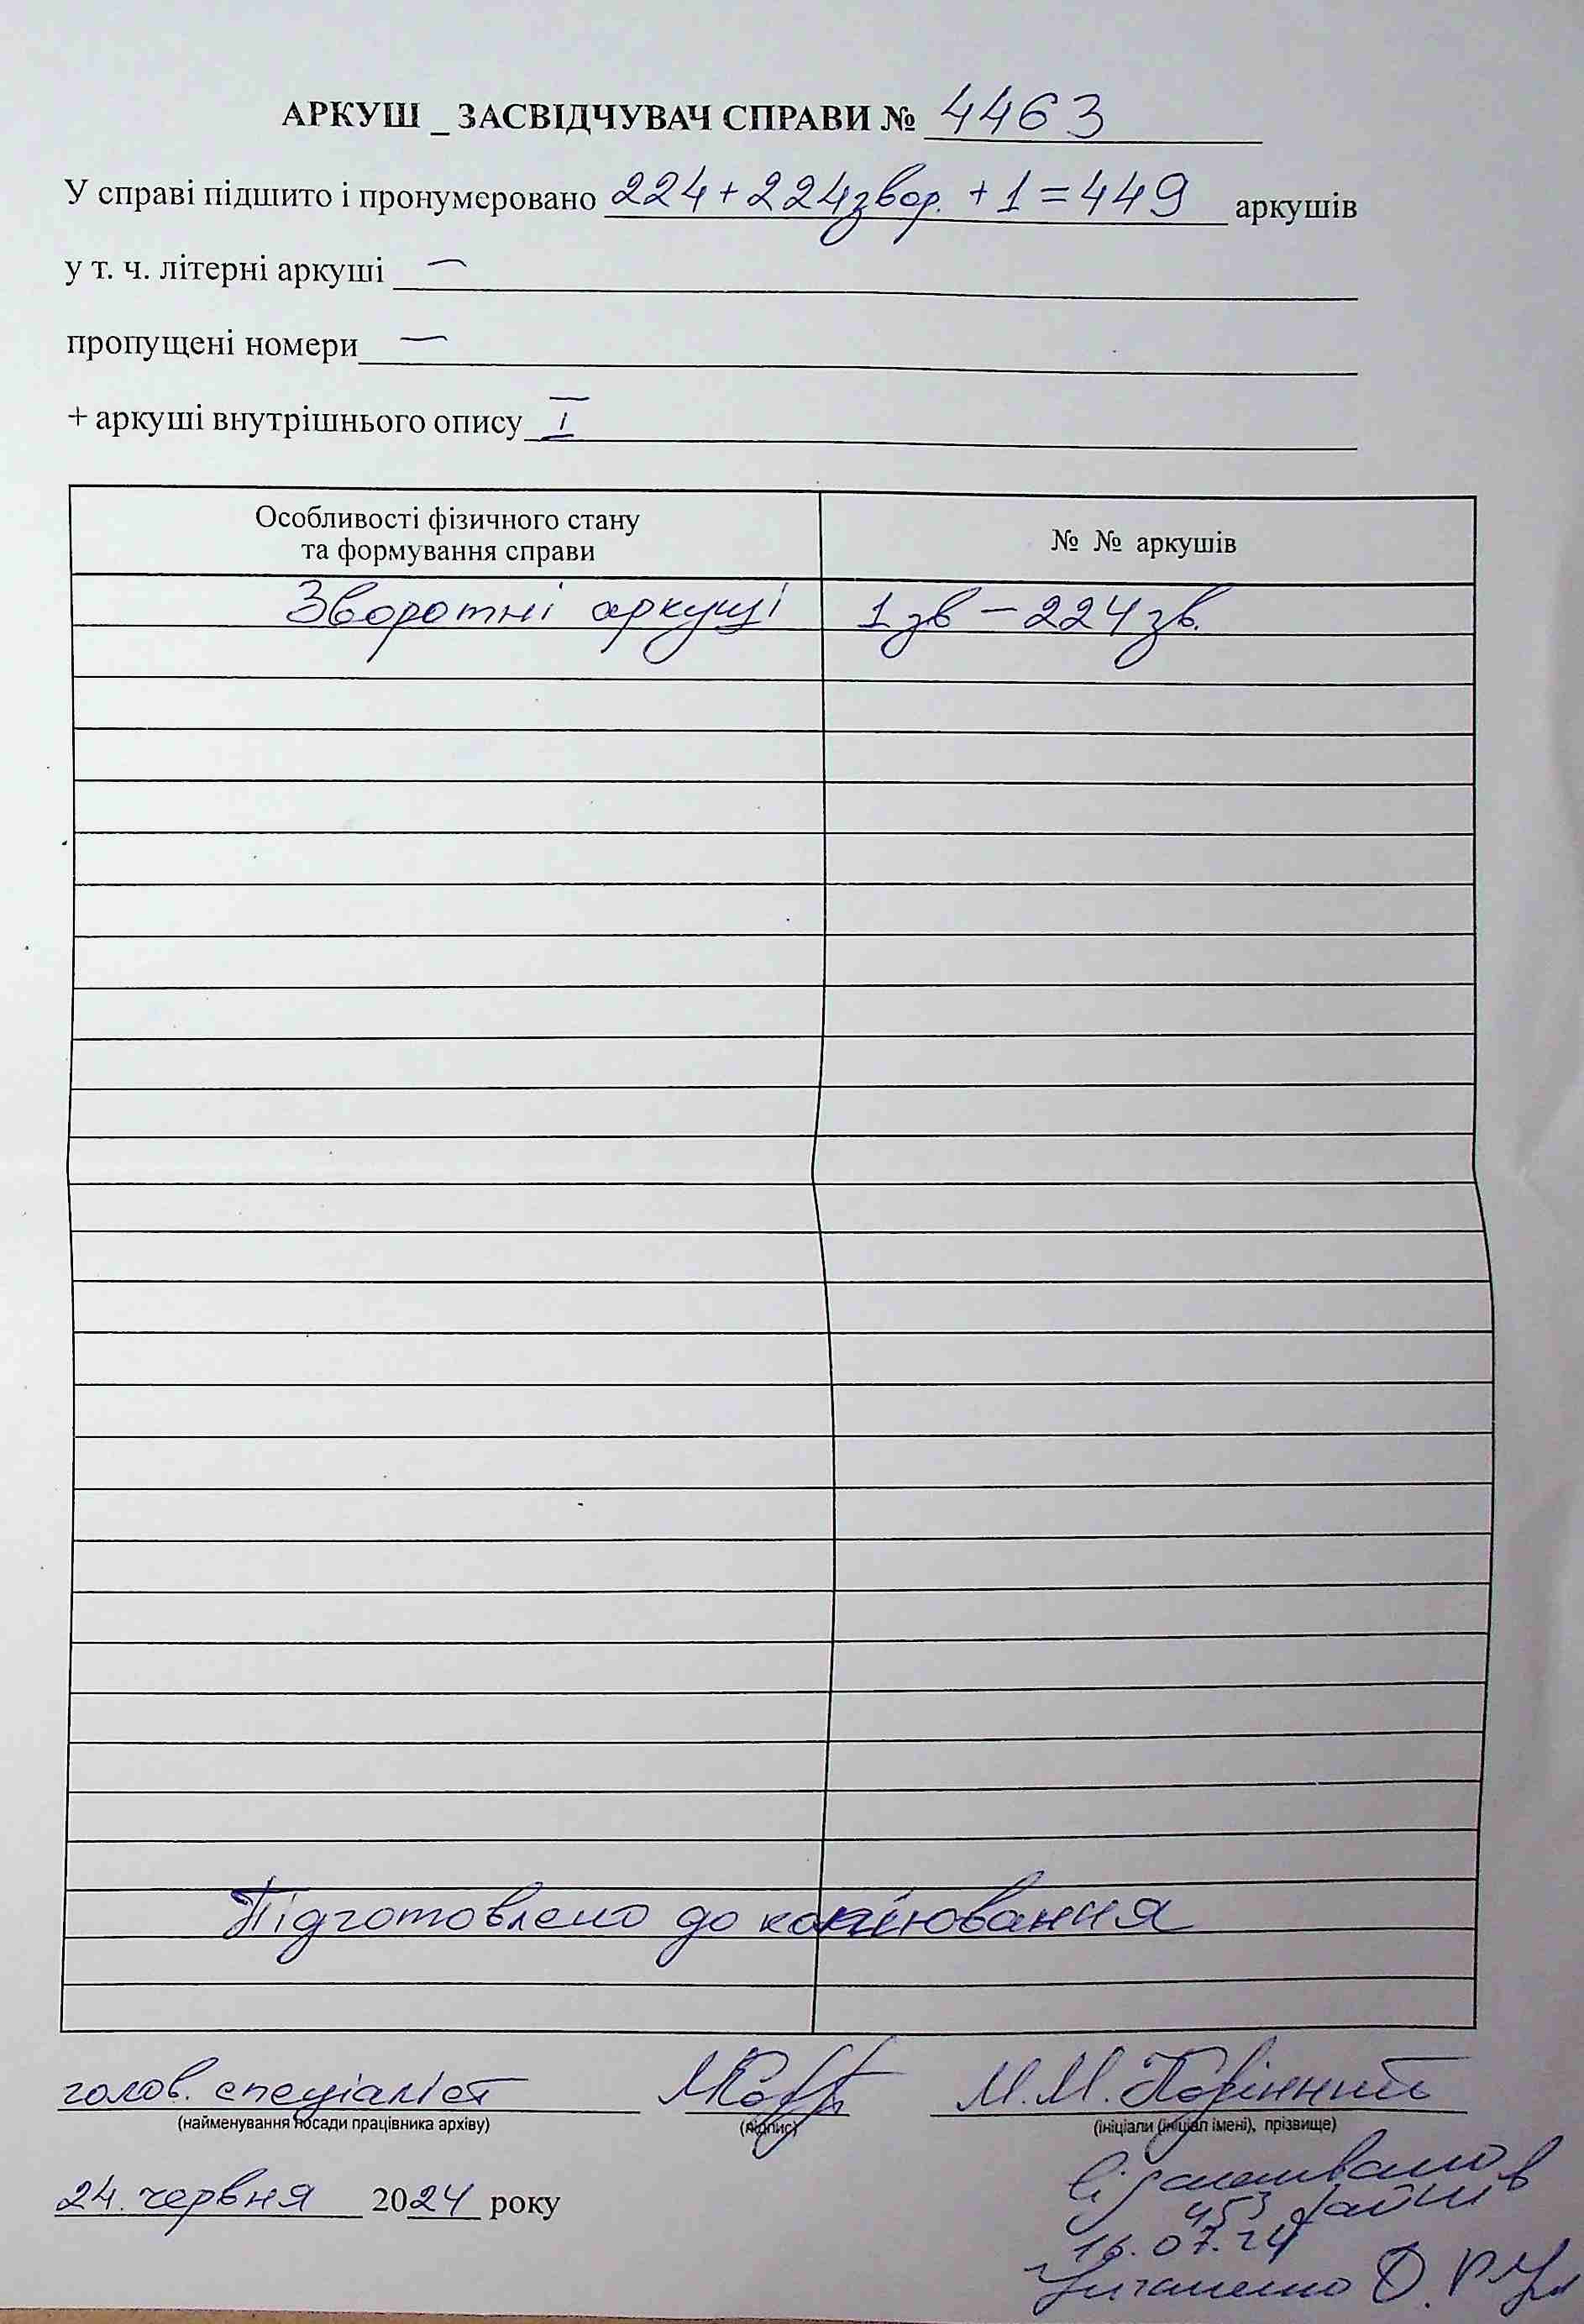 АРКУШ _ ЗАСВІДЧУВАЧ СПРАВИ № 4463
У справі підшито і пронумеровано 224+224звор. +1=449 аркушів
у т. ч. літерні аркуші —
пропущені номери —
+ аркуші внутрішнього опису I
Особливості фізичного стану
та формування справи
№ № аркушів
Зворотні аркуші 1зв – 224зв.
Підготовлено до копіювання
голов. спеціаліст М.М.
(найменування посади працівника архіву) (підпис) (ініціали (ініціал імені), прізвище)
24. червня 2024 року
453 файлів
16.07.24